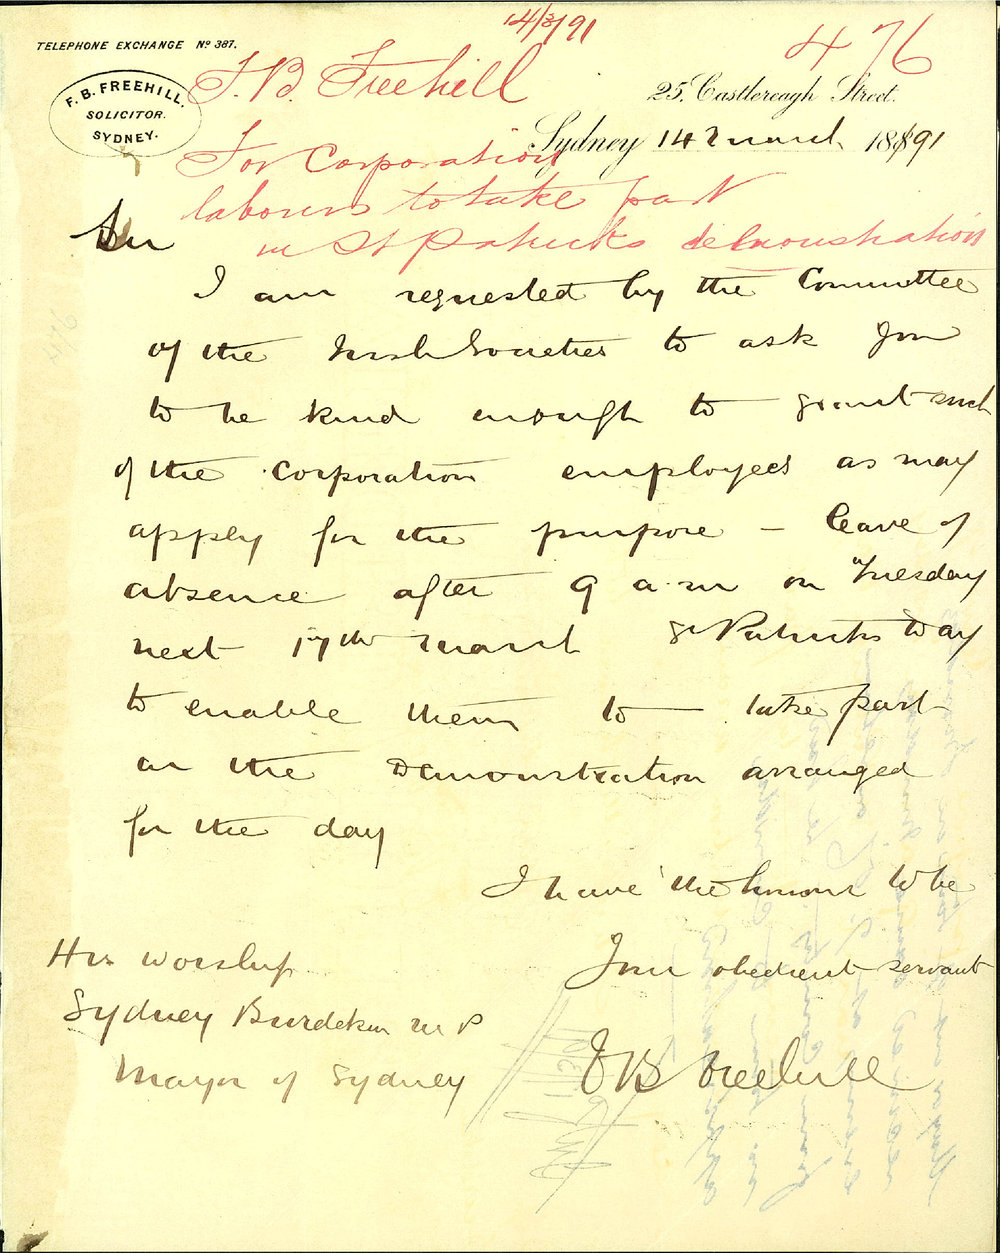 14/3/91
TELEPHONE EXCHANGE No 387.
476
F. B. FREEHILL.
SOLICITOR.
SYDNEY.
F. B. Freehill
25, Castlereagh Street.
Sydney 14 March 1891
For Corporation
laborers to take part
in St Patricks demonstration
Sir
I am requested by the Committee
of the Irish Societies to ask you
to be kind enough to grant such
of the Corporation employees as may
apply for the purpose - leave of
absence after 9 a.m on Tuesday
next 17th March St Patricks Day
to enable them to take part
in the Demonstration arranged
for the day
I have the honour to be
Your obedient servant
His Worship
Sydney Burdekin M P
Mayor of Sydney
F B Freehill